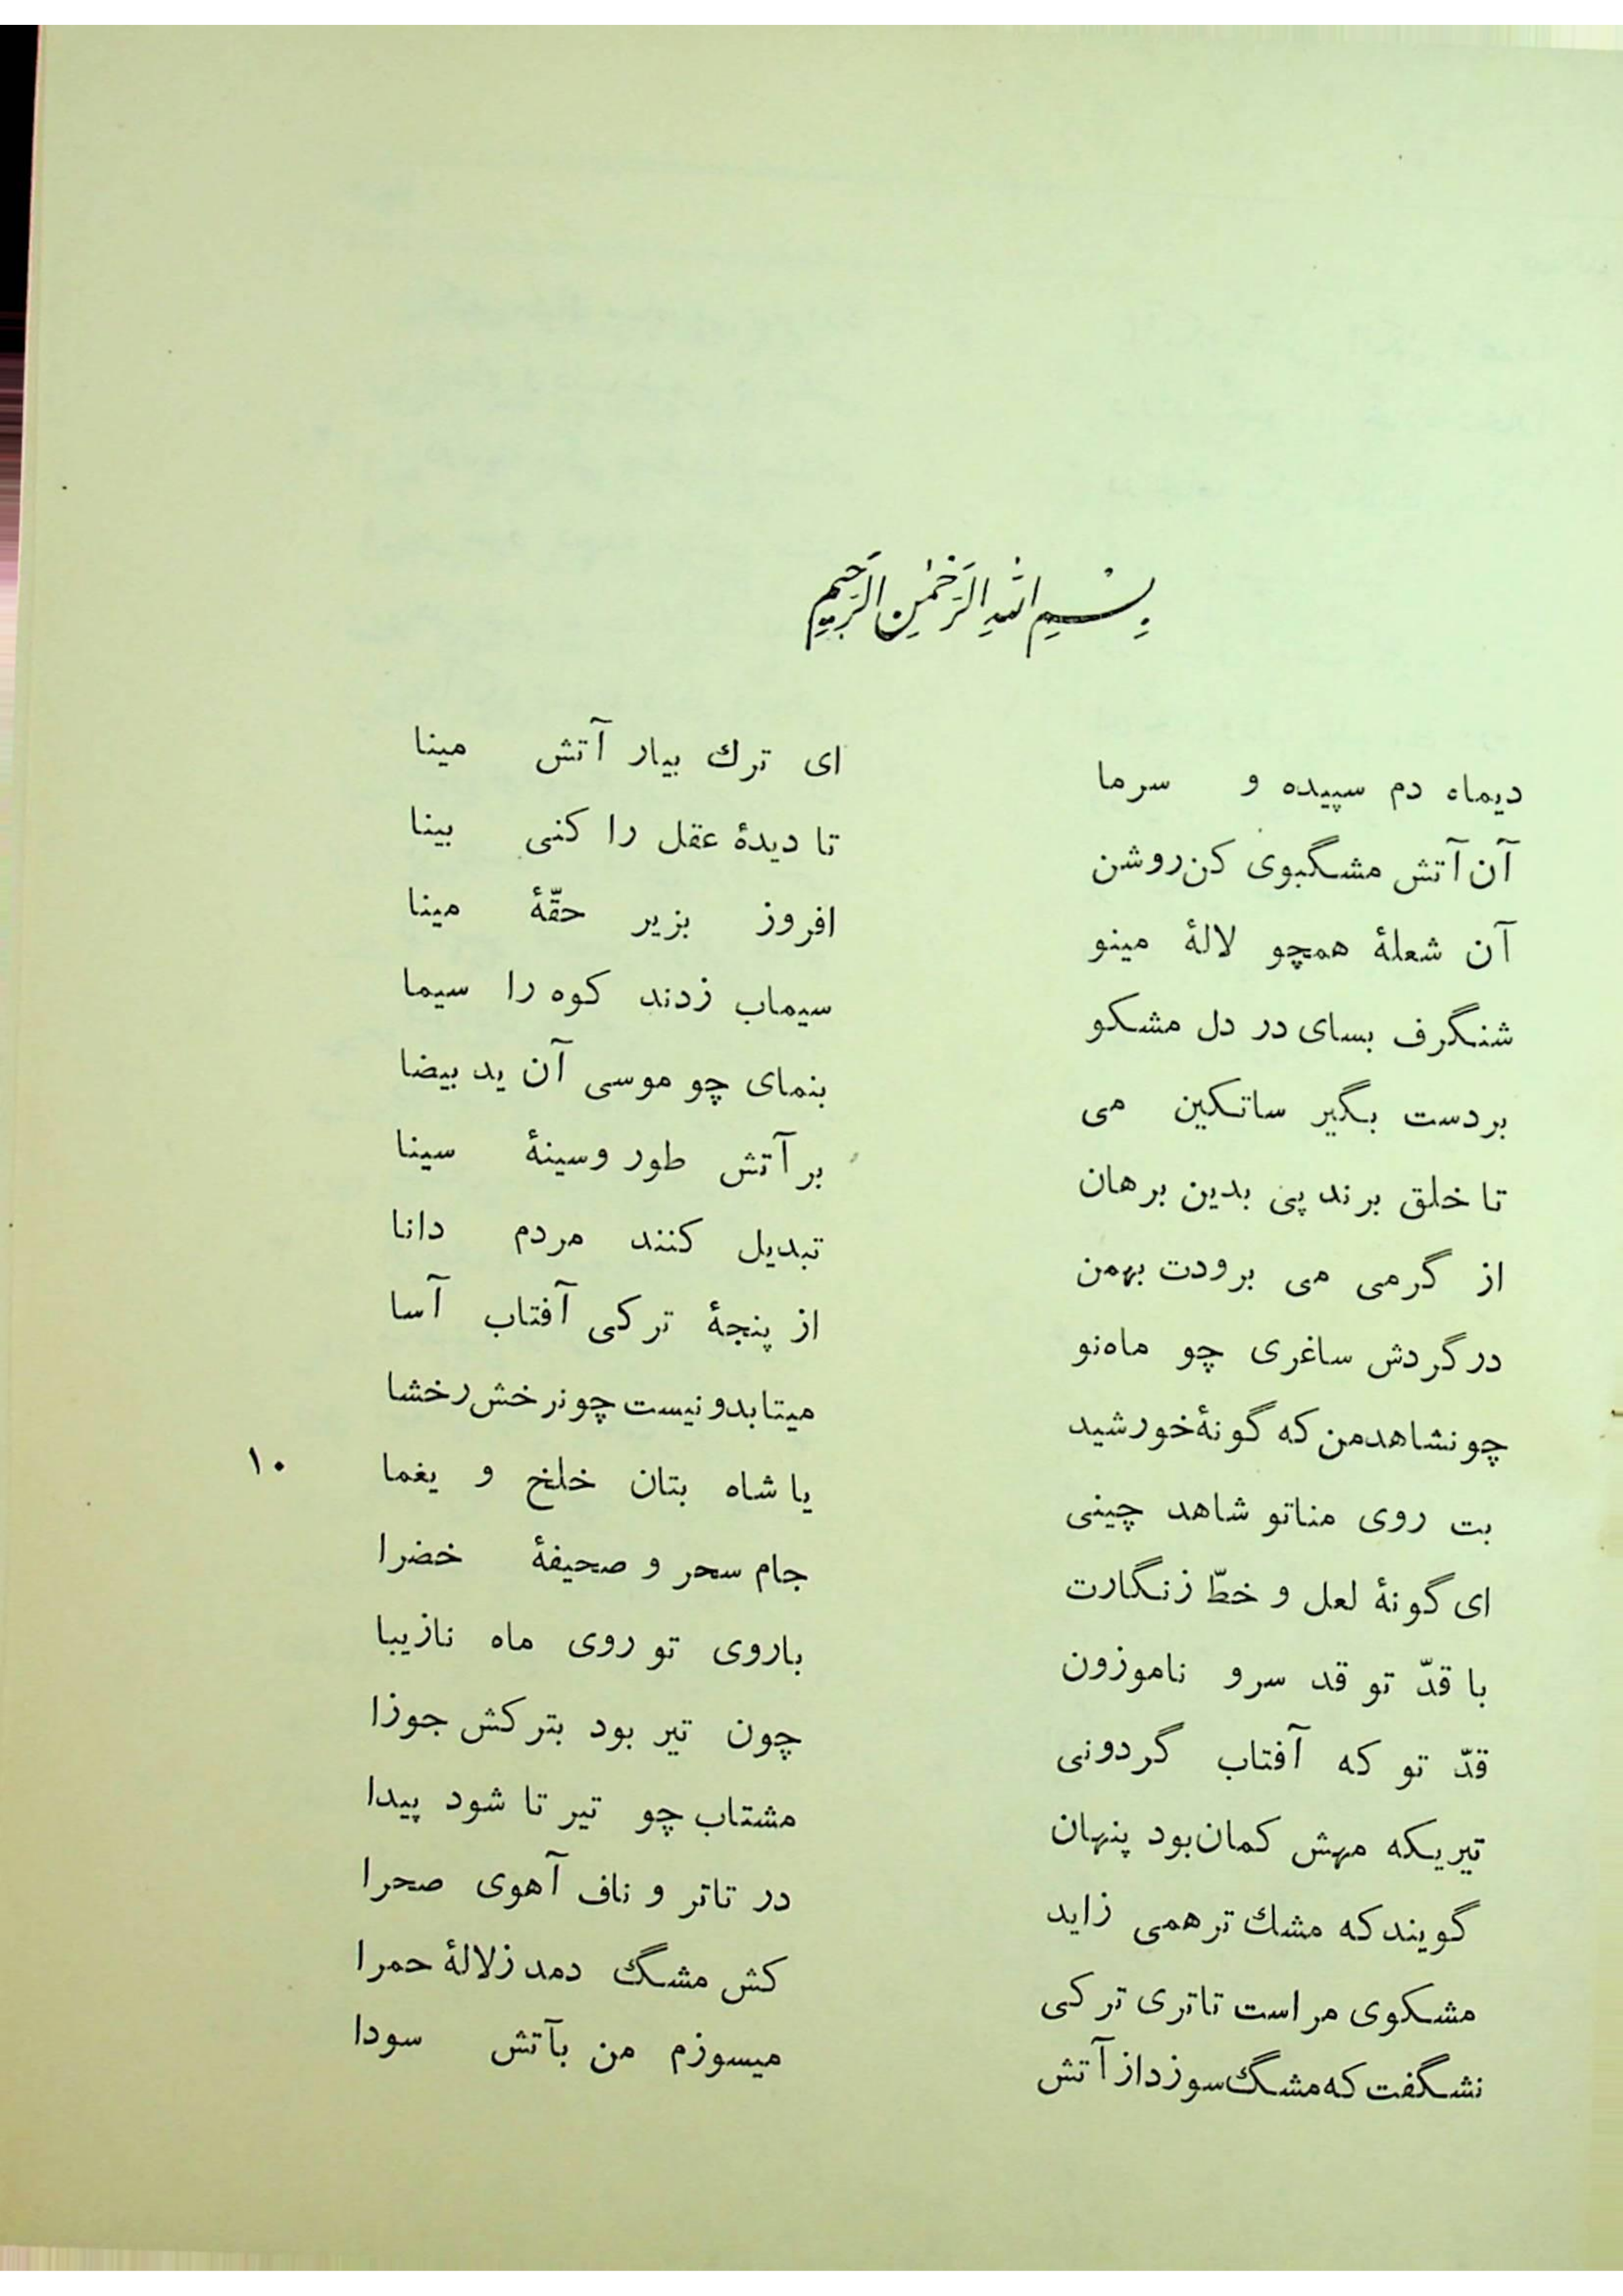 بِسْمِ اللهِ الرَّحْمٰنِ الرَّحِيمِ
دیماه دم سپیده و سرما ای ترك بیار آتش مینا
آن آتش مشگبوی کن روشن تا دیدهٔ عقل را کنی بینا
آن شعلهٔ همچو لالهٔ مینو افروز بزیر حقّهٔ مینا
شنگرف بسای در دل مشکو سیماب زدند کوه را سیما
بردست بگیر ساتکین می بنمای چو موسی آن ید بیضا
تا خلق برند پی بدین برهان بر آتش طور وسینهٔ سینا
از گرمی می برودت بهمن تبدیل کنند مردم دانا
درگردش ساغری چو ماه‌نو از پنجهٔ ترکی آفتاب آسا
چونشاهدمن که گونهٔ خورشید میتابدو نیست چونرخش رخشا
بت روی مناتو شاهد چینی یا شاه بتان خلخ و یغما ۱۰
ای گونهٔ لعل و خطّ زنگارت جام سحر و صحیفهٔ خضرا
با قدّ تو قد سرو ناموزون باروی تو روی ماه نازیبا
قدّ تو که آفتاب گردونی چون تیر بود بترکش جوزا
تیریکه مهش کمان‌بود پنهان مشتاب چو تیر تا شود پیدا
گویند که مشك ترهمی زاید در تاتر و ناف آهوی صحرا
مشکوی مراست تاتری ترکی کش مشگ دمد زلالهٔ حمرا
نشگفت که مشگ سوزداز آتش میسوزم من بآتش سودا